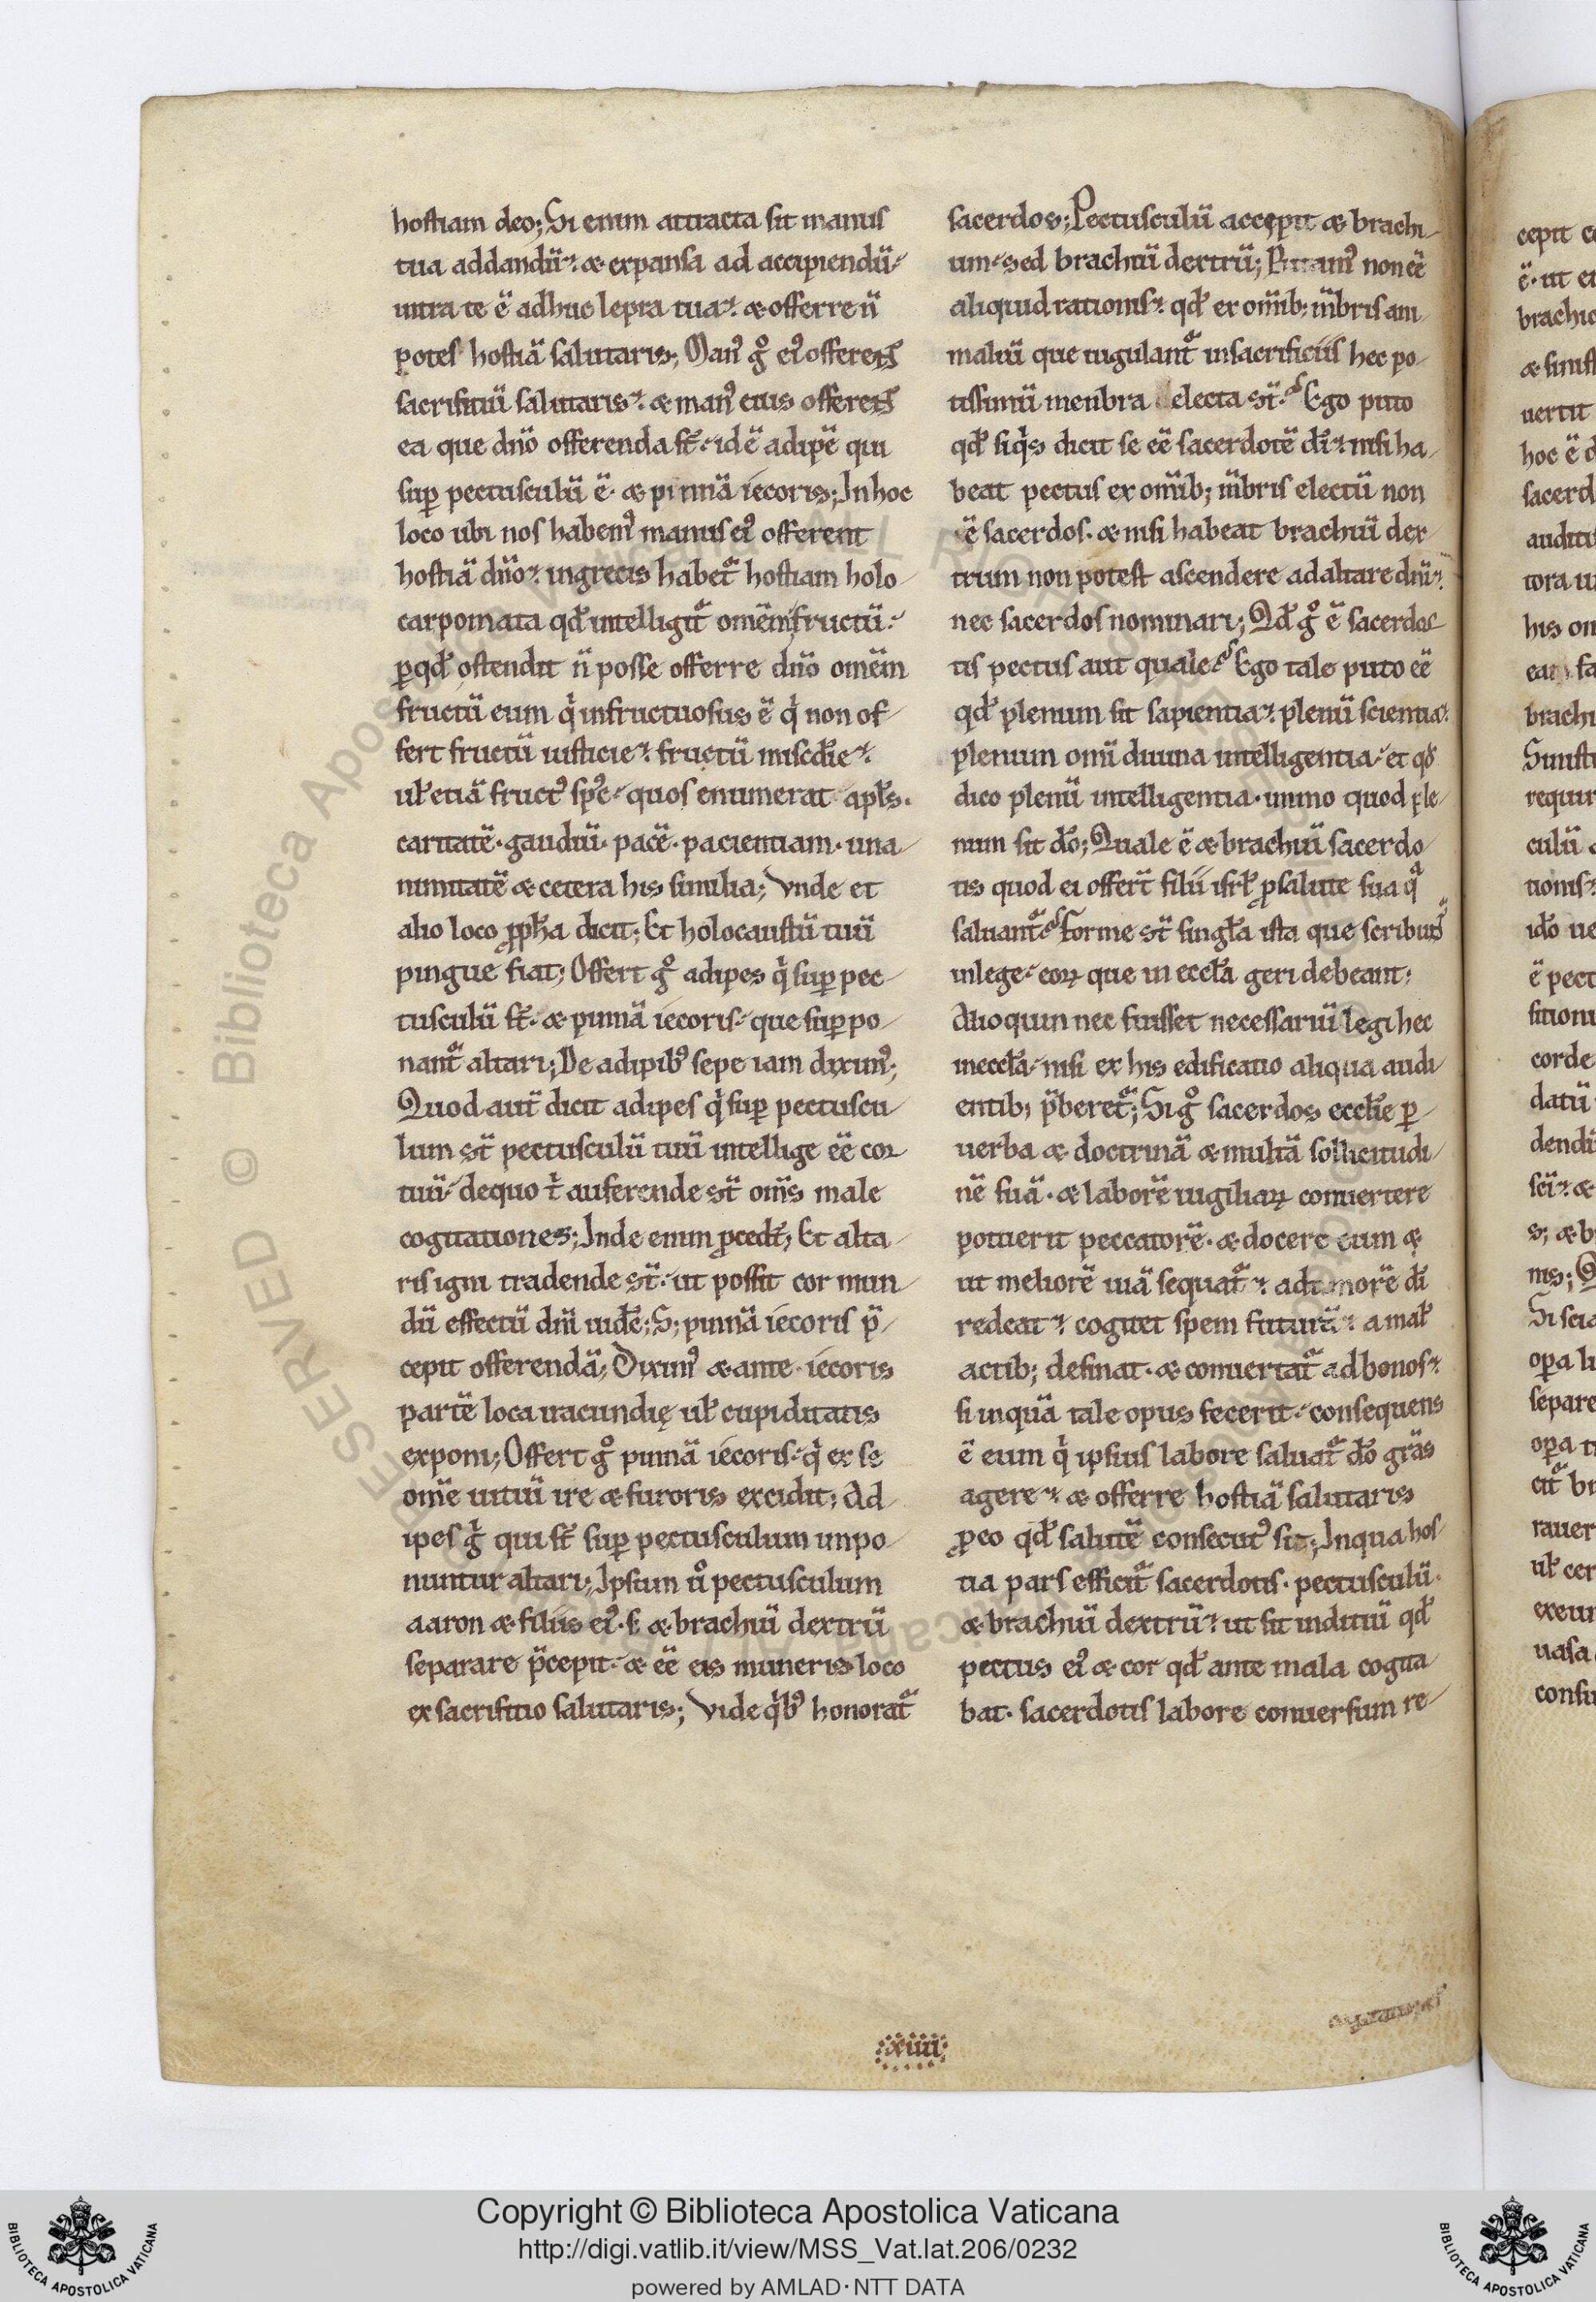 hostiam deo; Si enim attracta sit manus
tua addandū. & expansa ad accipiendū.
intra te ē adhuc lepra tua. & offerre ñ
potes hostiā salutaris; Manꝰ gͦ eiꝰ offerent
sacrifitiū salutaris. & manꝰ eius offerent
ea que dño offerenda st̄. idē adipē qui
sup̱ pectusculū ē. & pinnā iecoris; In hoc
loco ubi nos habemꝰ manus eiꝰ offerent
hostiā dño. ingrecis habet᷑ hostiam holo
carpomata qđ intelligit᷑ omēm fructū.
p̱qđ ostendit ñ posse offerre dño omēm
fructū eum q̇ infructuosus ē q̇ non of
fert fructū iusticie. fructū miscđie.
uł etiā fructꝰ sp̄c. quos enumerat apłs.
caritatē. gaudiū. pacē. pacientiam. una
nimitatē & cetera his similia; Vnde et
alio loco ꝓpħa dicit; Et holocaustū tuū
pingue fiat; Offert gͦ adipes q̇ sup̱ pec
tusculū st̄. & pinnā iecoris. que sup̱ po
nant᷑ altari; De adipibꝰ sepe iam diximꝰ;
Quod aut̄ dicit adipes q̇ sup̱ pectuscu
lum st̄ pectusculū tuū intellige eē cor
tuū. dequo t̍ auferende st̄ om̄s male
cogitationes; Inde enim ꝓcedt̄; Et alta
ris igni tradende st̄. ut possit cor mun
dū effectū dm̄ uidē; S; pinnā iecoris p̄
cepit offerendā; Diximꝰ & ante iecoris
partē loca iracundię uł cupiditatis
exponi; Offert gͦ pinnā iecoris. q̇ ex se
om̄e uitiū ire & furoris excidit; Ad
ipes g̍ qui st̄ sup̱ pectusculum impo
nuntur altari; Ipsum uͦ pectusculum
aaron & filiis eiꝰ. s. & brachiū dextrū
separare p̄cepit. & eē eis muneris loco
ex sacrifitio salutaris; Vide q̇bꝰ honorat᷑
sacerdos; Pectusculū accepit & brachi
um. sed brachiū dextrū; Putamꝰ non eē
aliquid rationis. qđ ex om̄ib; m̄bris ani
maliū que iugulant᷑ insacrificiis hec po
tissimū menbra electa st̄. Ego puto
qđ siq̇s dicit se eē sacerdotē dī. nisi ha
beat pectus ex om̄ib; m̄bris electū non
ē sacerdos. & nisi habeat brachiū dex
trum non potest ascendere ad altare dnī.
nec sacerdos nominari; Qđ gͦ ē sacerdo
tis pectus aut quale. Ego tale puto eē
qđ plenum sit sapientia. plenū scientia.
plenum omī diuina intelligentia. et qđ
dico plenū intelligentia. immo quod ple
num sit dō; Quale ē & brachiū sacerdo
tis quod ei offert̄ filii isrł ꝓ salute sua qͣ
saluant᷑. Forme st̄ singła ista que scribunt᷑
inlege. eoꝝ que in eccła geri debeant;
Alioquin nec fuisset necessariū legi hec
ineccła. nisi ex his edificatio aliqua audi
entib; p̄beret᷑; Si gͦ sacerdos ecclīe p̱
uerba & doctrinā & multā sollicitudi
nē suā. & laborē uigiliaꝝ conuertere
potuerit peccatorē. & docere eum &
ut meliorē uiā sequat᷑. ad timorē dī
redeat. cogitet spem futurā. a mal̄
actib; desinat. & conuertat᷑ ad bonos.
si inquā tale opus fecerit. consequens
ē eum q̇ ipsius labore saluat᷑ dō grās
agere. & offerre hostiā salutaris
ꝓ eo qđ salutē consecutꝰ sit; Inqua hos
tia pars efficit᷑ sacerdotis. pectusculū.
& brachiū dextrū. ut sit inditiū qđ
pectus eiꝰ & cor qđ ante mala cogita
bat. sacerdotis labore conuersum re
xiiii
cepit
ē. ut
brachio
uertit
hoc ē
sacerd
auditu
tora
his
brachi
requir
culū
tionis
ē pect
corde
datū
separe
uasa
Biblioteca Apostolica Vaticana ALL RIGHTS RESERVED ©
Copyright © Biblioteca Apostolica Vaticana
http://digi.vatlib.it/view/MSS_Vat.lat.206/0232
powered by AMLAD·NTT DATA
BIBLIOTECA APOSTOLICA VATICANA
BIBLIOTECA APOSTOLICA VATICANA